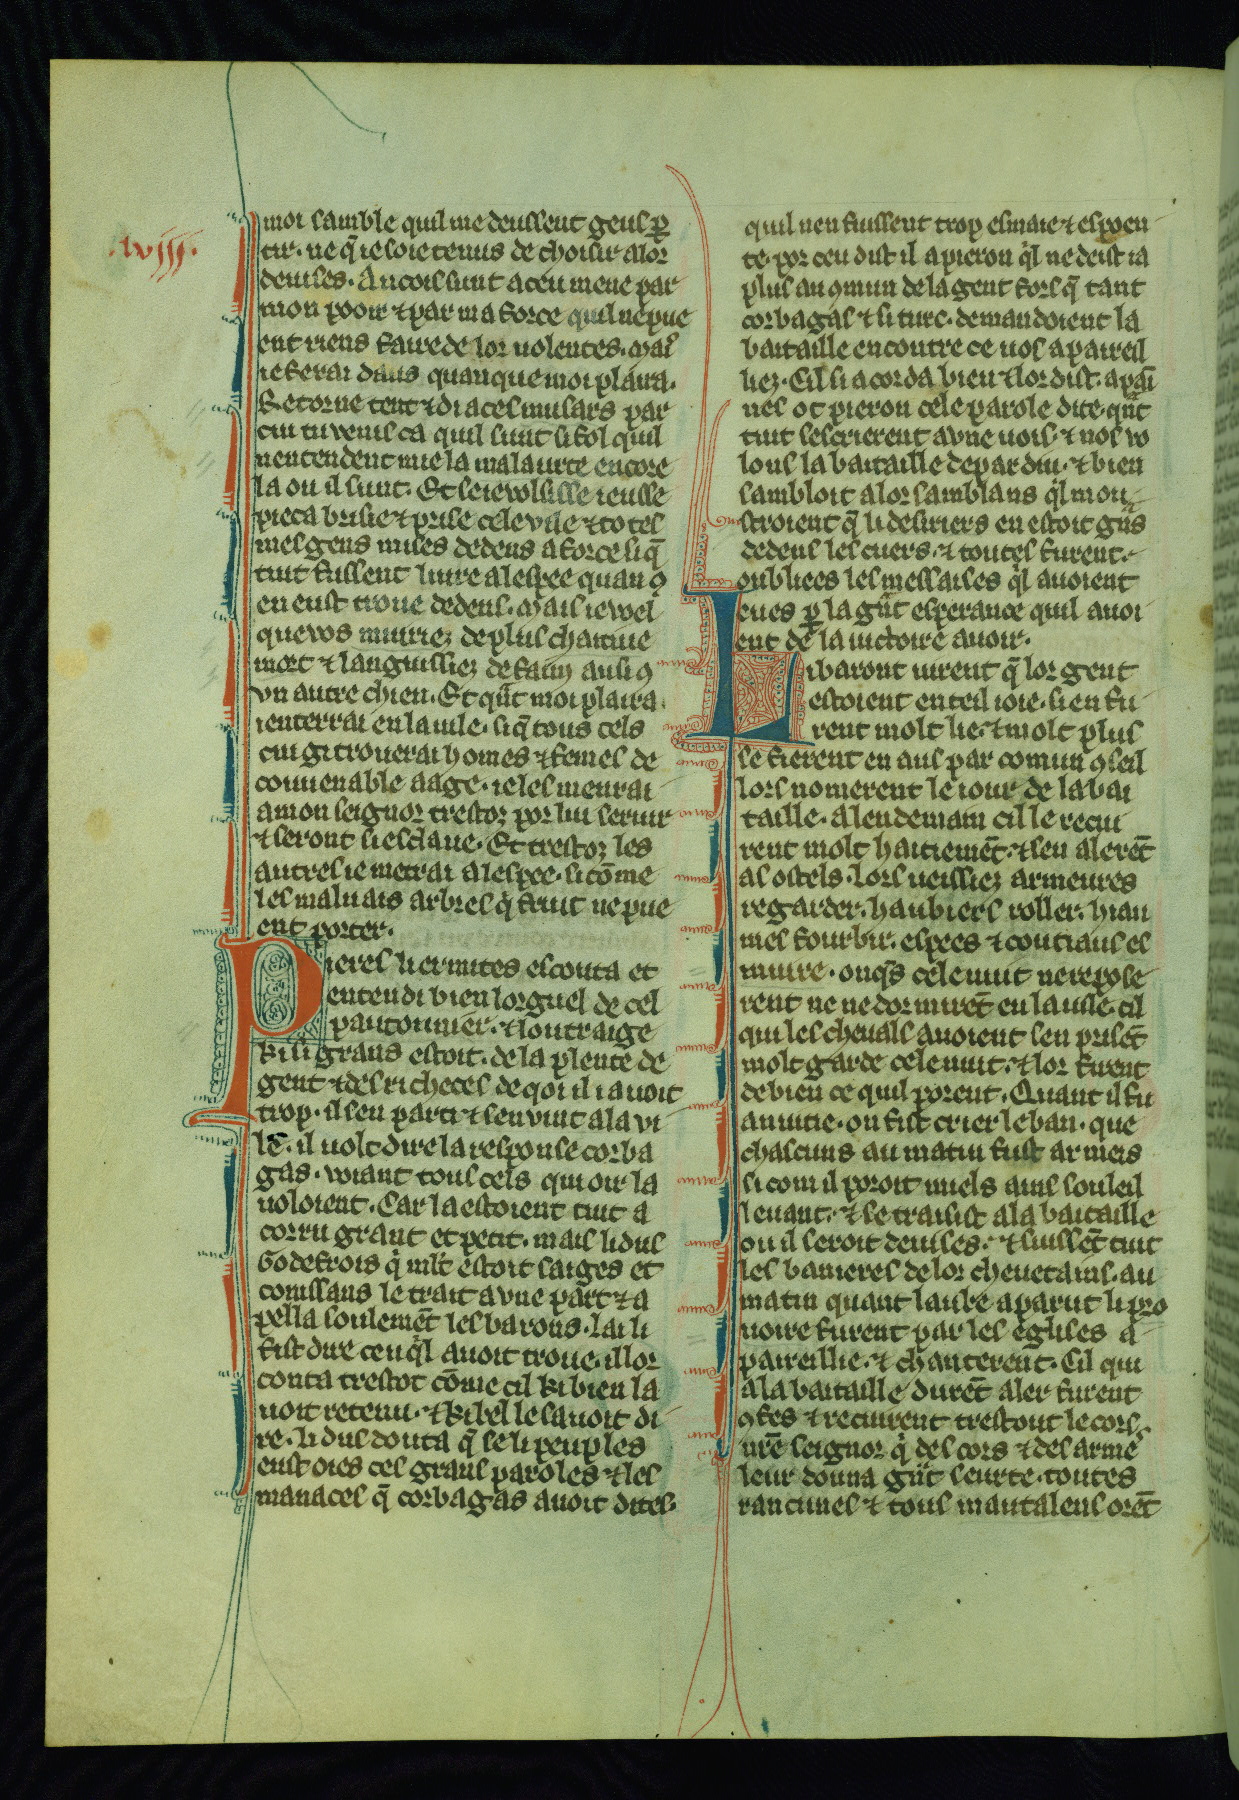 .viij.
moi samble quil me deussent geus ꝑ
tir. ne q̄ ie soie tenus de choisir a lor
deuises. Ancois sunt a ceu mene par
mon pooir ⁊ par ma force quil ne pue
ent riens faire de lor uolentes. mais
ie ferai daus quanque moi plaira.
Retorne tent ⁊ di a ces musars par
cui tu venis ca quil sunt si fol quil
nentendent mie la malaurte encore
la ou il sunt. Et se ie volsisse ieusse
pieca brisie ⁊ prise cele vile ⁊ totes
mes gens mises dedens a force si q̄
tuit fussent liure a lespee quan ꝯ
en eust troue dedens. mais ie wel
que vos muiriez de plus chaitiue
mort ⁊ languissiez de faim ausi ꝯ
vn autre chien. Et qūt moi plaira
ienterrai en la uile. si q̄ tous cels
cui gi trouerai homes ⁊ femes de
couuenable aage. ie les menrai
a mon seignor trestoz por lui seruir
⁊ seront si esclaue. Et trestoz les
autres ie metrai a lespee. si cōme
les maluais arbres q̇ fruit ne pue
ent porter.
Pieres li ermites escouta et
entendi bien lorguel de cel
pautonnier. ⁊ loutraige
ki si grans estoit. de la plente de
gent ⁊ des richeces de qoi il i auoit
trop. il sen parti ⁊ sen vint a la vi
le. il uolt dire la response corba
gas. voiant tous cels qui oir la
uoloient. Car la estoient tuit a
corru grant et petit. mais li dus
Godefrois q̇ ml't estoit saiges et
conissans le trait a vne part ⁊ a
pella soulemēt les barons. lai li
fist dire ceu q̇l auoit troue. il lor
conta trestot cōme cil ki bien la
uoit retenu. ⁊ ki bel le sauoit di
re. li dus douta q̄ se li peuples
eust oies ces grans paroles ⁊ les
manaces q̄ corbagas auoit dites.
quil nen fuissent trop esmaie ⁊ espoen
te. por ceu dist il a pieron q̇l ne deist ia
plus au ꝯmun de la gent fors q̄ tant
corbagas ⁊ si turc. demandoient la
bataille encontre ce uos apareil
liez. Cil si acorda bien ⁊ lor dist. a pai
nes ot pieron cele parole dite. qūt
tuit sescrierent a vne uois. ⁊ nos vo
lous la bataille de par diu. ⁊ bien
sambloit a lor samblans q̇l mou
stroient q̄ li desiriers en estoit grās
dedens les cuers. ⁊ toutes furent.
oubliees les messaises q̇l auoient
eues ꝑ la grāt esperance quil auoi
ent de la uictoire auoir.
Li baront uirent q̄ lor gent
estoient en teil ioie. si en fu
rent molt lie. ⁊ molt plus
se fierent en aus par comun ꝯseil
lors nomerent le iour de la bai
taille. a lendemain cil le recui
rent molt haitiemēt. ⁊ sen alerēt
as ostels. lors ueissiez armeures
regarder. haubiers roller. hiau
mes fourbir. espees ⁊ coutiaus es
muire. onq̄s cele nuit ne repose
rent ne ne dormirēt en la uile. cil
qui les cheuals auoient sen prisēt
molt garde cele nuit. ⁊ lor firent
de bien ce quil porent. Quant il fu
anuitie. on fist crier le ban. que
chascuns au matin fust armeis
si com il poroit miels ains souleil
leuant. ⁊ se traisist a la bataille
ou il seroit deuises. ⁊ suissēt tuit
les banieres de lor cheuetains. au
matin quant laube aparut li pro
uoire furent par les eglises a
pareillie. ⁊ chanterent. Cil qui
a la bataille durēt aler furent
ꝯfes ⁊ recuirent trestout le cors
nrē seignor q̇ des cors ⁊ des arme
leur donna grāt seurte. toutes
rancunes ⁊ tous mautalens orēt